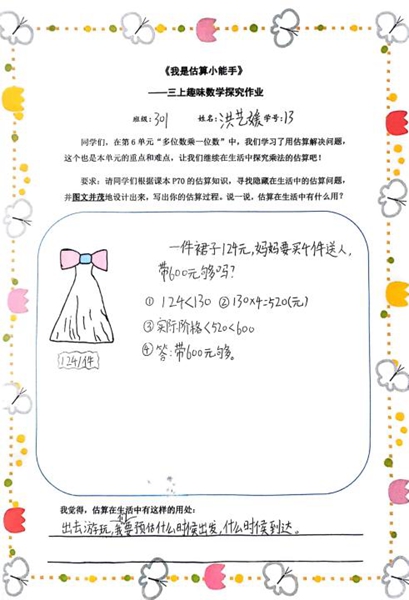 《我是估算小能手》
——三上趣味数学探究作业
班级：301 姓名：洪艺媛 学号：13
同学们，在第 6 单元“多位数乘一位数”中，我们学习了用估算解决问题，
这个也是本单元的重点和难点，让我们继续在生活中探究乘法的估算吧！
要求：请同学们根据课本 P70 的估算知识，寻找隐藏在生活中的估算问题，
并图文并茂地设计出来，写出你的估算过程，说一说，估算在生活中有什么用？
一件裙子124元，妈妈要买4件送人，
带600元够吗？
① 124<130 ② 130×4=520(元)
③ 实际价格<520<600
④ 答：带600元够。
124/件
我觉得，估算在生活中有这样的用处：
出去游玩，我要预估什么时候出发，什么时候到达。